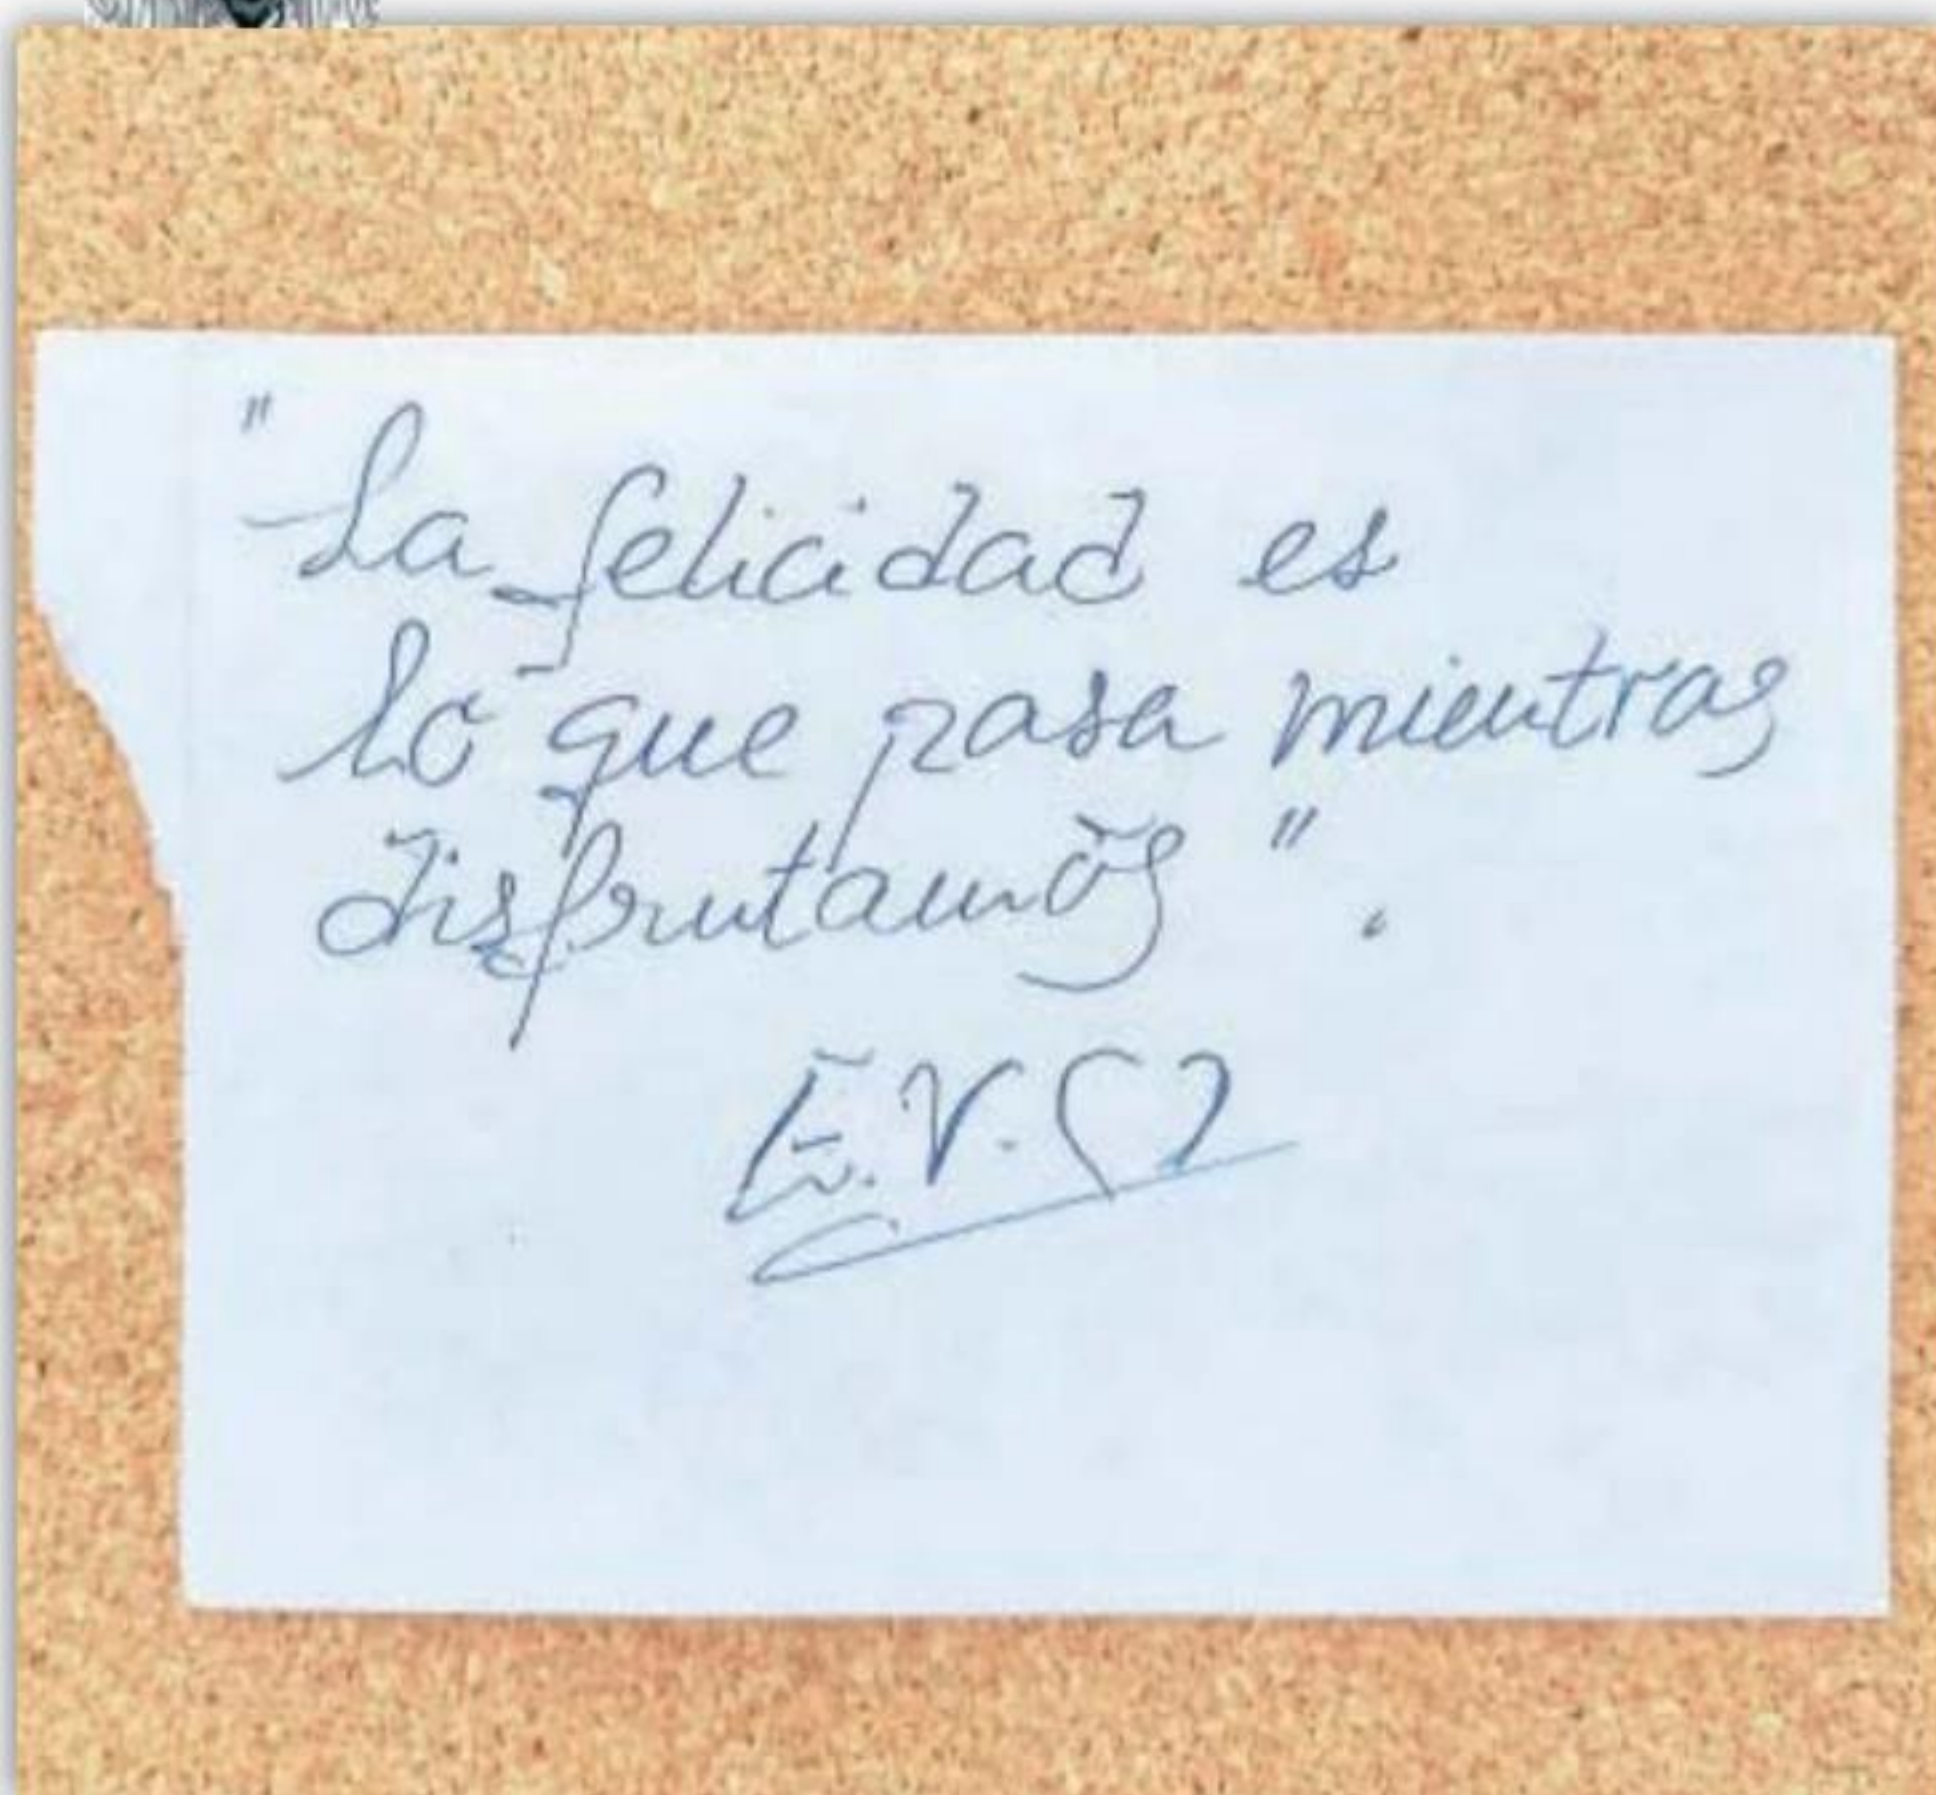 "La felicidad es
lo que pasa mientras
disfrutamos".
E.V.